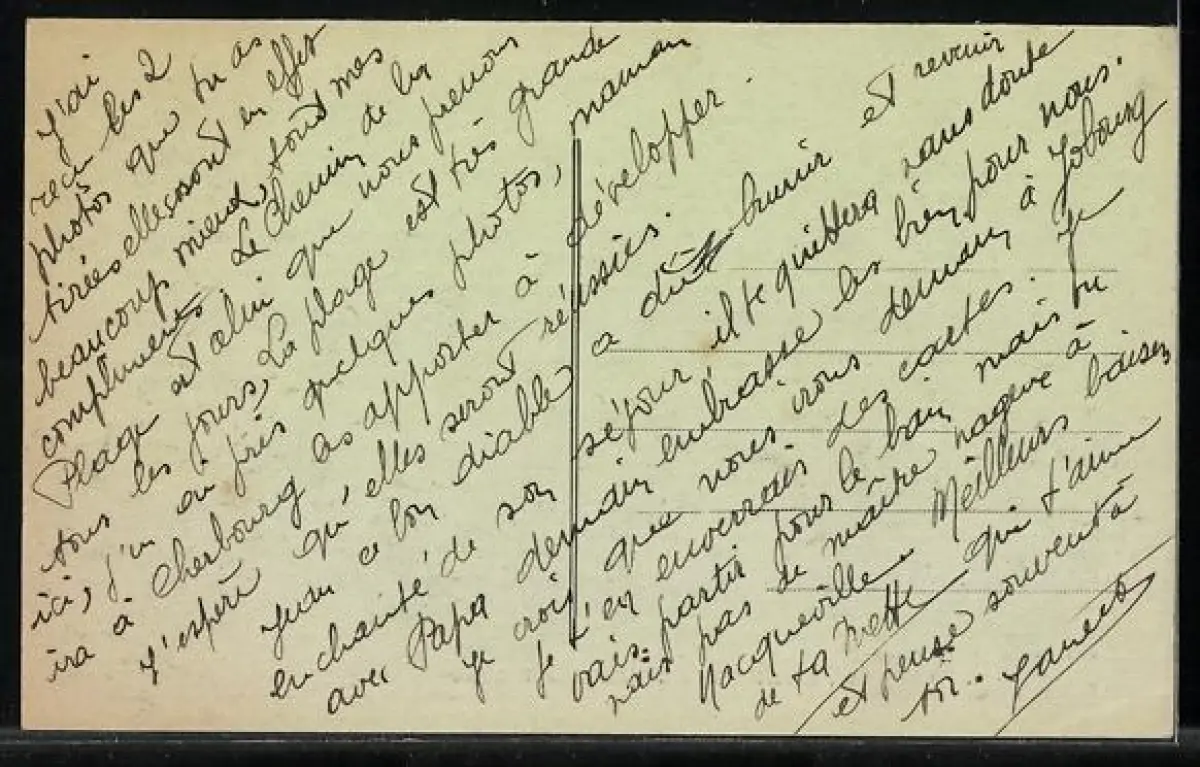 J'ai
reçu les 2
photos que tu as
tirées elles sont en effet
beaucoup mieux, tout mes
compliments Le Chemin de la
Plage est celui que nous prenons
tous les jours, La plage est très grande
ici, j'en ai pris quelques photos, maman
ira à Cherbourg les apporter à développer.
J'espère qu'elles seront réussies.
Jean ce bon diable a dû brunir et revenir
enchanté de son séjour, il te quittera sans doute
avec Papa demain embrasse les bien pour nous.
Je crois que nous irons demain à Jobourg
je t'en enverrai des cartes. Je
vais partir pour le bain mais tu
n'as pas de maître nageur à
Nacqueville Meilleurs baisers
de ta Nette qui t'aime
et pense souvent à
toi. Janets